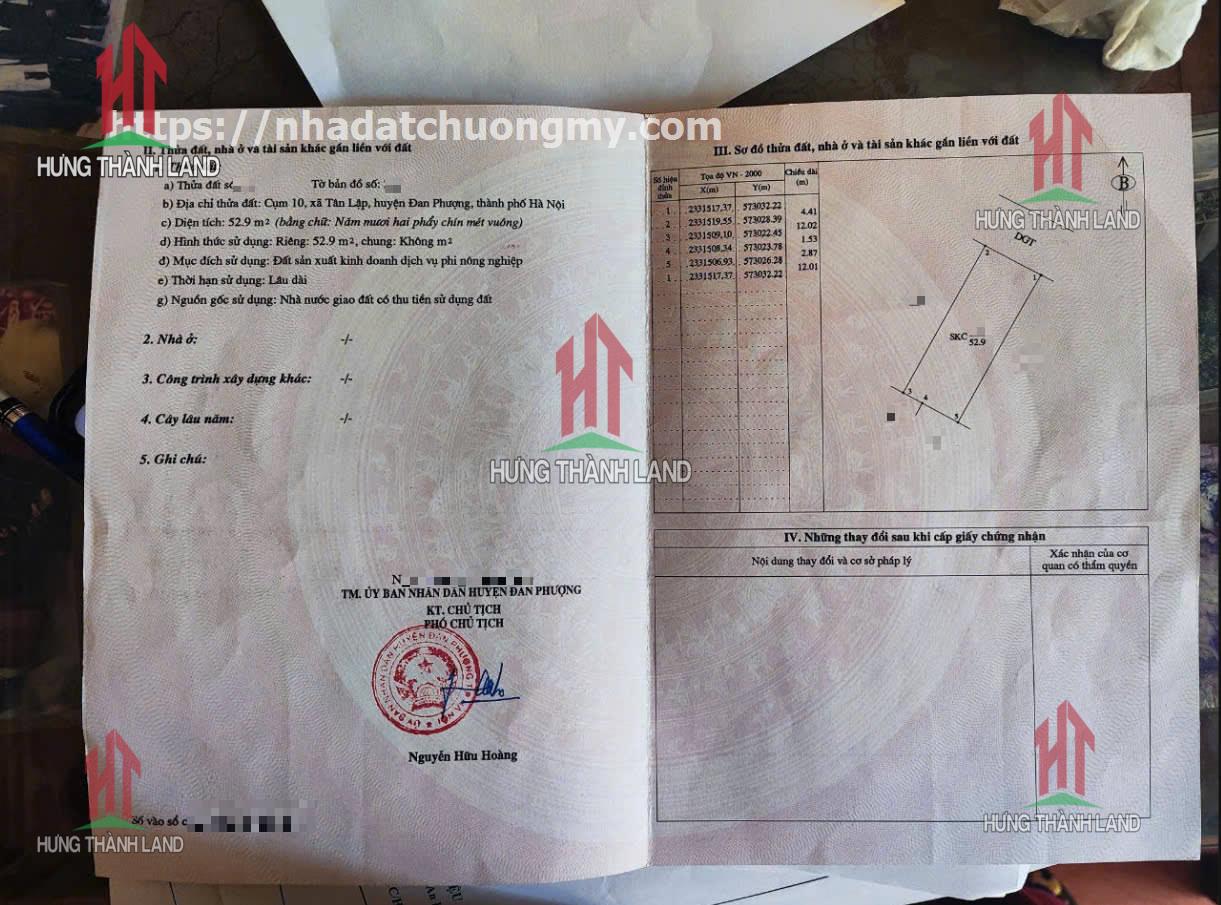 https://nhadatchuongmy.com
HƯNG THÀNH LAND
II. Thửa đất, nhà ở và tài sản khác gắn liền với đất
a) Thửa đất số
Tờ bản đồ số:
b) Địa chỉ thửa đất: Cụm 10, xã Tân Lập, huyện Đan Phượng, thành phố Hà Nội
c) Diện tích: 52.9 m² (bằng chữ: Năm mươi hai phẩy chín mét vuông)
d) Hình thức sử dụng: Riêng: 52.9 m², chung: Không m²
đ) Mục đích sử dụng: Đất sản xuất kinh doanh dịch vụ phi nông nghiệp
e) Thời hạn sử dụng: Lâu dài
g) Nguồn gốc sử dụng: Nhà nước giao đất có thu tiền sử dụng đất
2. Nhà ở: -/-
3. Công trình xây dựng khác: -/-
4. Cây lâu năm: -/-
5. Ghi chú:
HƯNG THÀNH LAND
TM. ỦY BAN NHÂN DÂN HUYỆN ĐAN PHƯỢNG
KT. CHỦ TỊCH
PHÓ CHỦ TỊCH
ỦY BAN NHÂN DÂN HUYỆN ĐAN PHƯỢNG
Nguyễn Hữu Hoàng
Số vào sổ c
HƯNG THÀNH LAND
III. Sơ đồ thửa đất, nhà ở và tài sản khác gắn liền với đất
Số hiệu đỉnh thửa
Tọa độ VN - 2000
Chiều dài (m)
X(m) Y(m)
1 2331517.37 573032.22
4.41
2 2331519.55 573028.39
12.02
3 2331509.10 573022.45
1.53
4 2331508.34 573023.78
2.87
5 2331506.93 573026.28
12.01
1 2331517.37 573032.22
B
HƯNG THÀNH LAND
DGT
2
1
SKC
52.9
3
4
5
IV. Những thay đổi sau khi cấp giấy chứng nhận
Nội dung thay đổi và cơ sở pháp lý
Xác nhận của cơ
quan có thẩm quyền
HƯNG THÀNH LAND